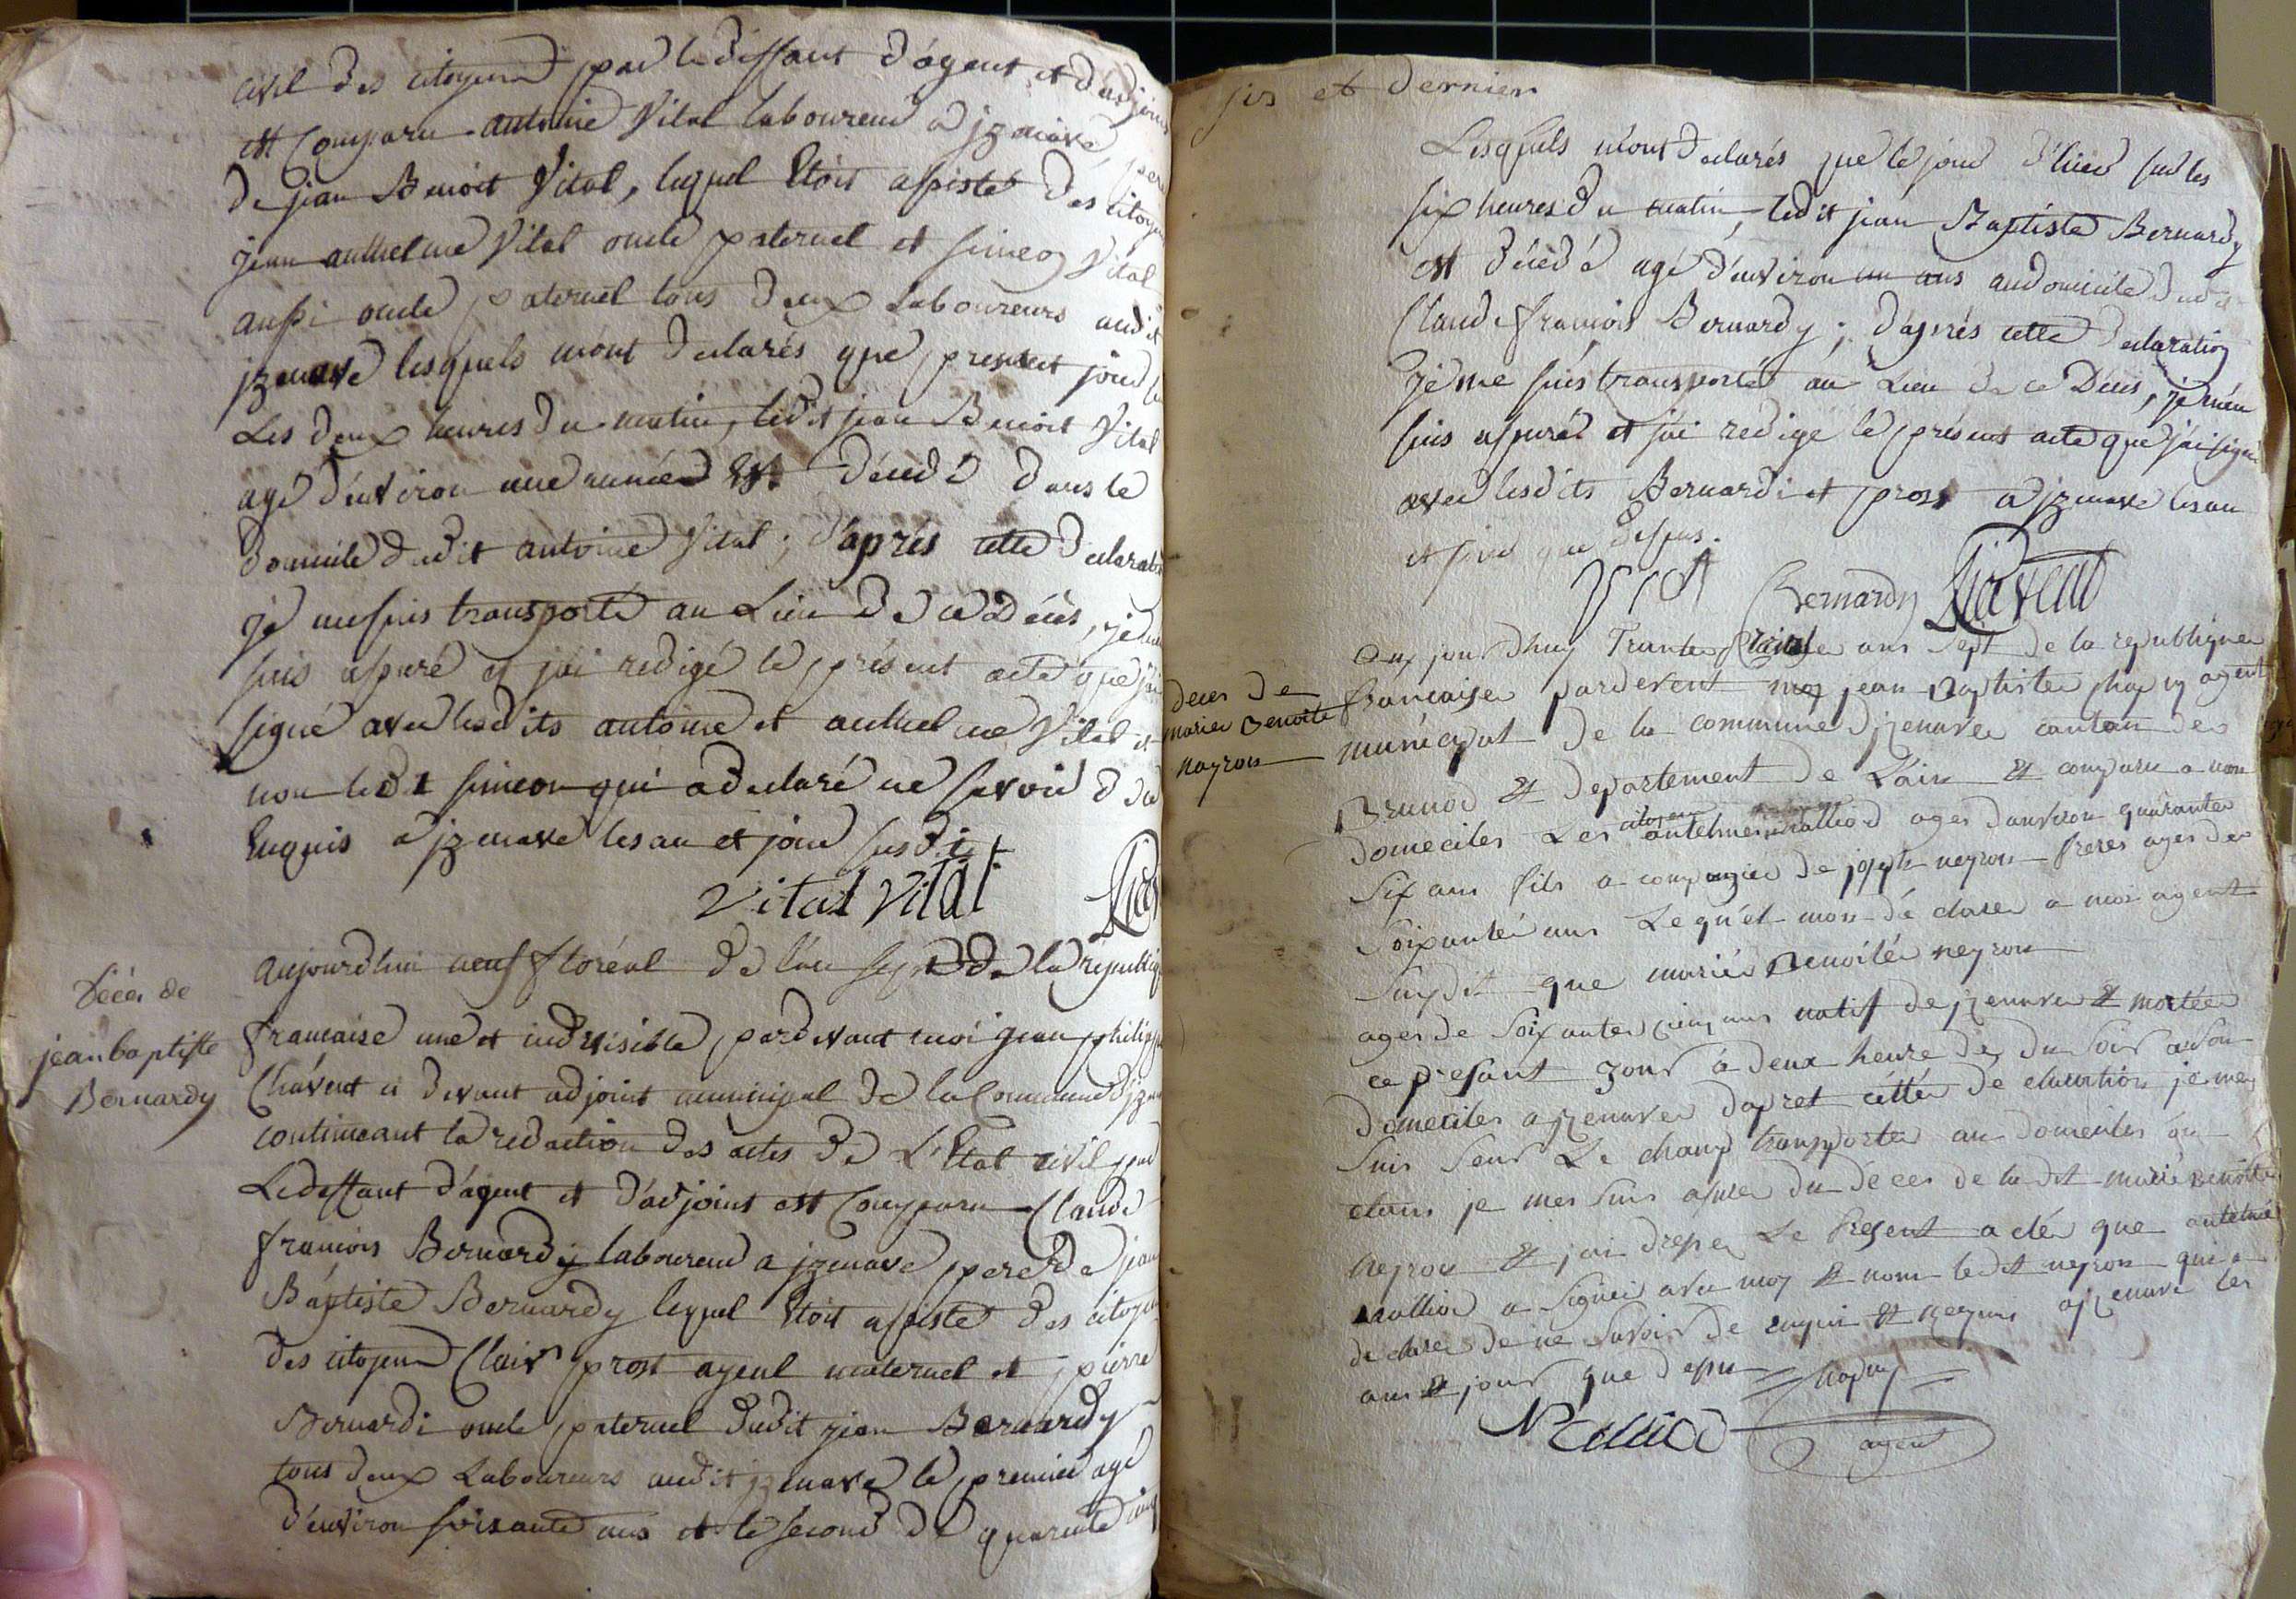 civil des citoyens par le deffaut d'agent et d'adjoint
est Comparu antoine Vital laboureur a jzenave, pere
de jean Benoit Vital, lequel Etoit assisté des citoyens
jean anthelme Vital oncle paternel et simeon Vital
aussi oncle paternel tous deux Laboureurs audit
jzenave lesquels m'ont declarés que present jour
Les deux heures du matin, ledit jean Benoit Vital
agé d'environ une année Est décédé dans le
domicile dudit antoine Vital ; d'aprés cette declaration
je me suis transporté au Lieu de ce décès, je
suis assuré et j'ai redigé le présent acte que j'ai
signé avec lesdits antoine et anthelme Vital et
non ledit simeon qui a declaré ne savoir de ce
Enquis a jzenave les an et jour susdit
Vital Vital
Décès de
jean baptiste
Bernardy
aujourdhui neuf floréal de l'an sept de la république
française une et indivisible, pardevant moi jean philippe
Chavent ci devant adjoint municipal de la Commune d'jzenave
continuant la redaction des actes de L'Etat civil par
Le deffaut d'agent et d'adjoint est Comparu Claude
françois Bernardy laboureur a jzenave pere de jean
Baptiste Bernardy lequel Etoit assisté des citoyens
des citoyens Clair prost ayeul maternel et pierre
Bernardi oncle paternel dudit jean Bernardy
tous deux Laboureurs audit jzenave le premier agé
d'environ soixante ans et le second de quarente cinq
six et dernier
Lesquels m'ont declarés que le jour d'hier sur les
six heures du matin, ledit jean Baptiste Bernardy
est décédé agé d'environ un ans au domicile dudit
Claude françois Bernardy ; d'aprés cette declaration
je me suis transporté au Lieu de ce Décès, je m'en
suis assuré et j'ai redigé le présent acte que j'ai signé
avec lesdits Bernardi et prost a jzenave les an
et jour que dessus.
Bernardy Chavent
deces de
marie Benoite
neyron
aujourdhuy Trante floréal ans sept de la republique
française pardevent moy jean Baptiste chapuy agent
municipat de la commune djzenave canton de
Brunod et departement de L'ain et comparu a mon
domeciles Les citoyen antelme malliod ages danviron quarante
six ans fils a compagnie de joseph neyron freres ages de
soixante ans Le quel mon dé clares a moi agent
susdit que marie Benoite neyron
ages de soixante cinq ans natif de jzenave et mortée
ce présant jour à deux heure de du soir a son
domeciles a jzenave dapret cétte dé claration je me
suis seur Le champ transporter au domeciles ou
étans je mes suis asures du déces de la dit marie Benoite
neyron et jai dresser Le present acte que antelme
malliod a signer avec moy et nom ledit neyron qui a
declares de ne savoir de enquis et requis a jzenave les
ans et jour que desu chapuy
Malliod agent